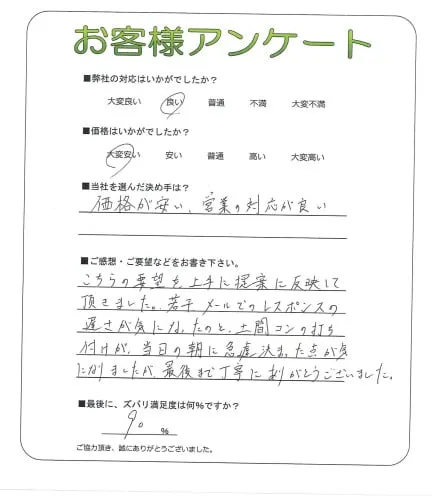 お客様アンケート
■弊社の対応はいかがでしたか?
大変良い 良い 普通 不満 大変不満
■価格はいかがでしたか?
大変安い 安い 普通 高い 大変高い
■当社を選んだ決め手は?
価格が安い、営業の対応が良い
■ご感想・ご要望などをお書き下さい。
こちらの要望を上手に提案に反映して
頂きました。若干メールでのレスポンスの
遅さが気になったのと、土間コンの打ち
付けが、当日の朝に急遽決まった点が気
になりましたが、最後まで丁寧にありがとうございました。
■最後に、ズバリ満足度は何%ですか?
90 %
ご協力頂き、誠にありがとうございました。